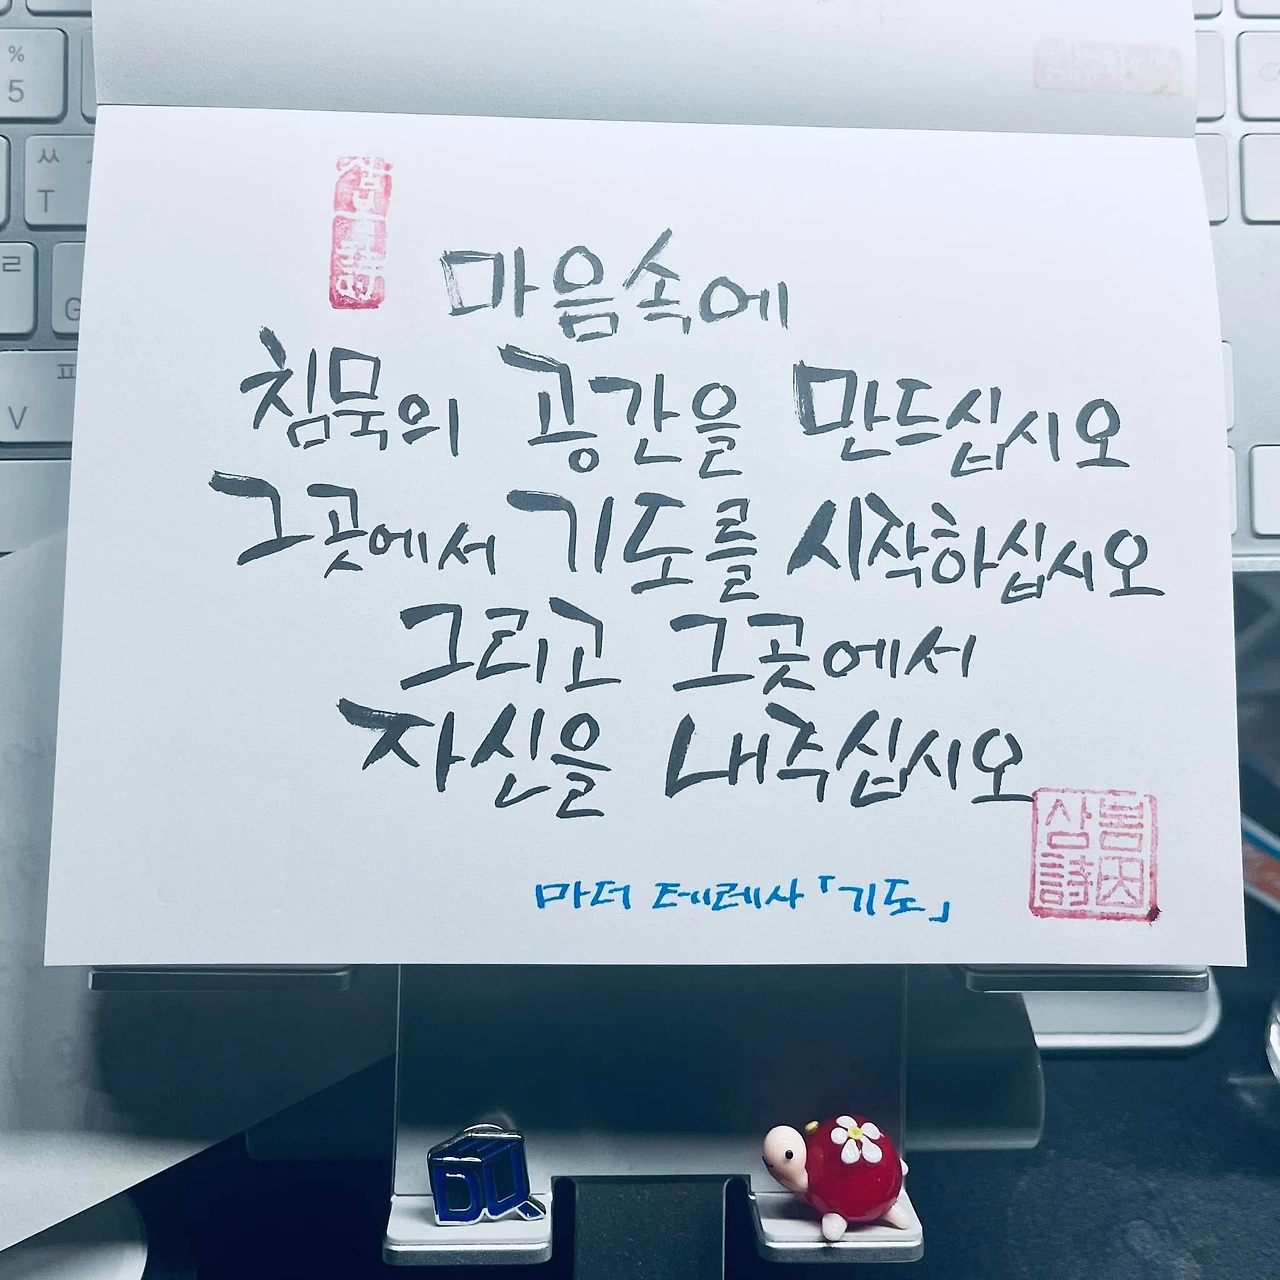 마음속에
침묵의 공간을 만드십시오
그곳에서 기도를 시작하십시오
그리고 그곳에서
자신을 내주십시오
마더 테레사 「기도」
%
5
ㅆ
T
ㄹ
G
ㅍ
V